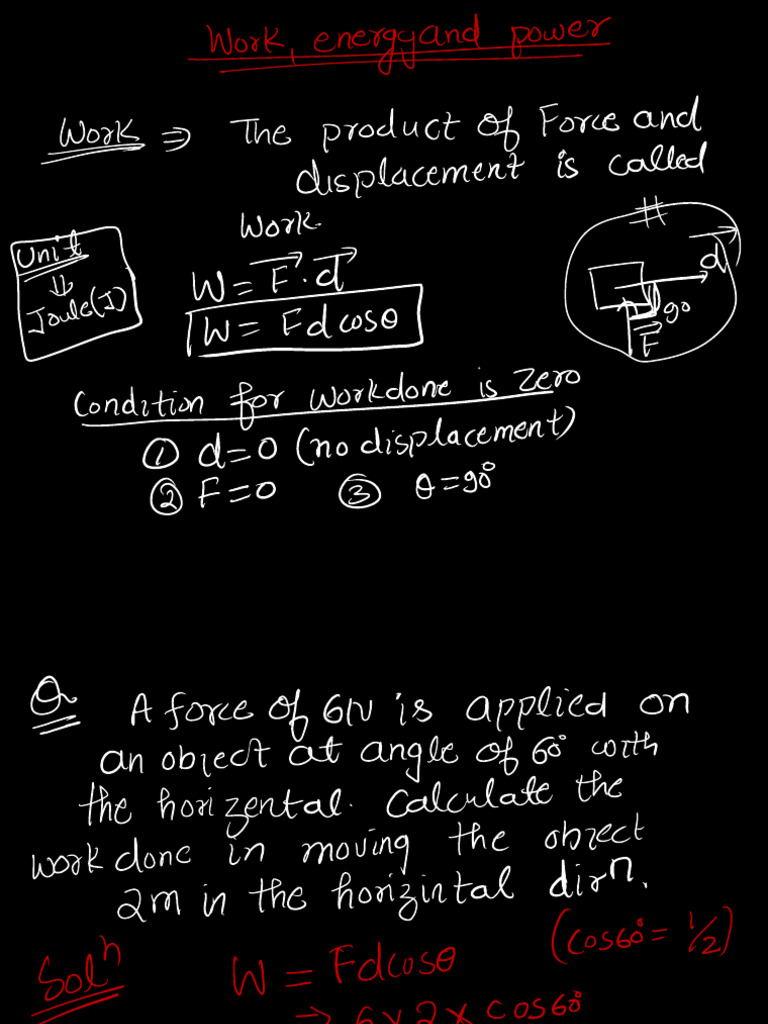 Work, energy and power
Work ⇒ The product of Force and
displacement is called
Work.
Unit
⇓
Joule(J)
W = F⃗ . d⃗
W = Fd cosθ
#
d⃗
90
F⃗
Condition for workdone is zero
① d=0 (no displacement)
② F=0 ③ θ=90°
Q A force of 6N is applied on
an object at angle of 60° with
the horizental. Calculate the
work done in moving the object
2m in the horizintal dirⁿ.
Solⁿ W = Fdcosθ (cos60° = 1/2)
→ 6 x 2 x cos60°